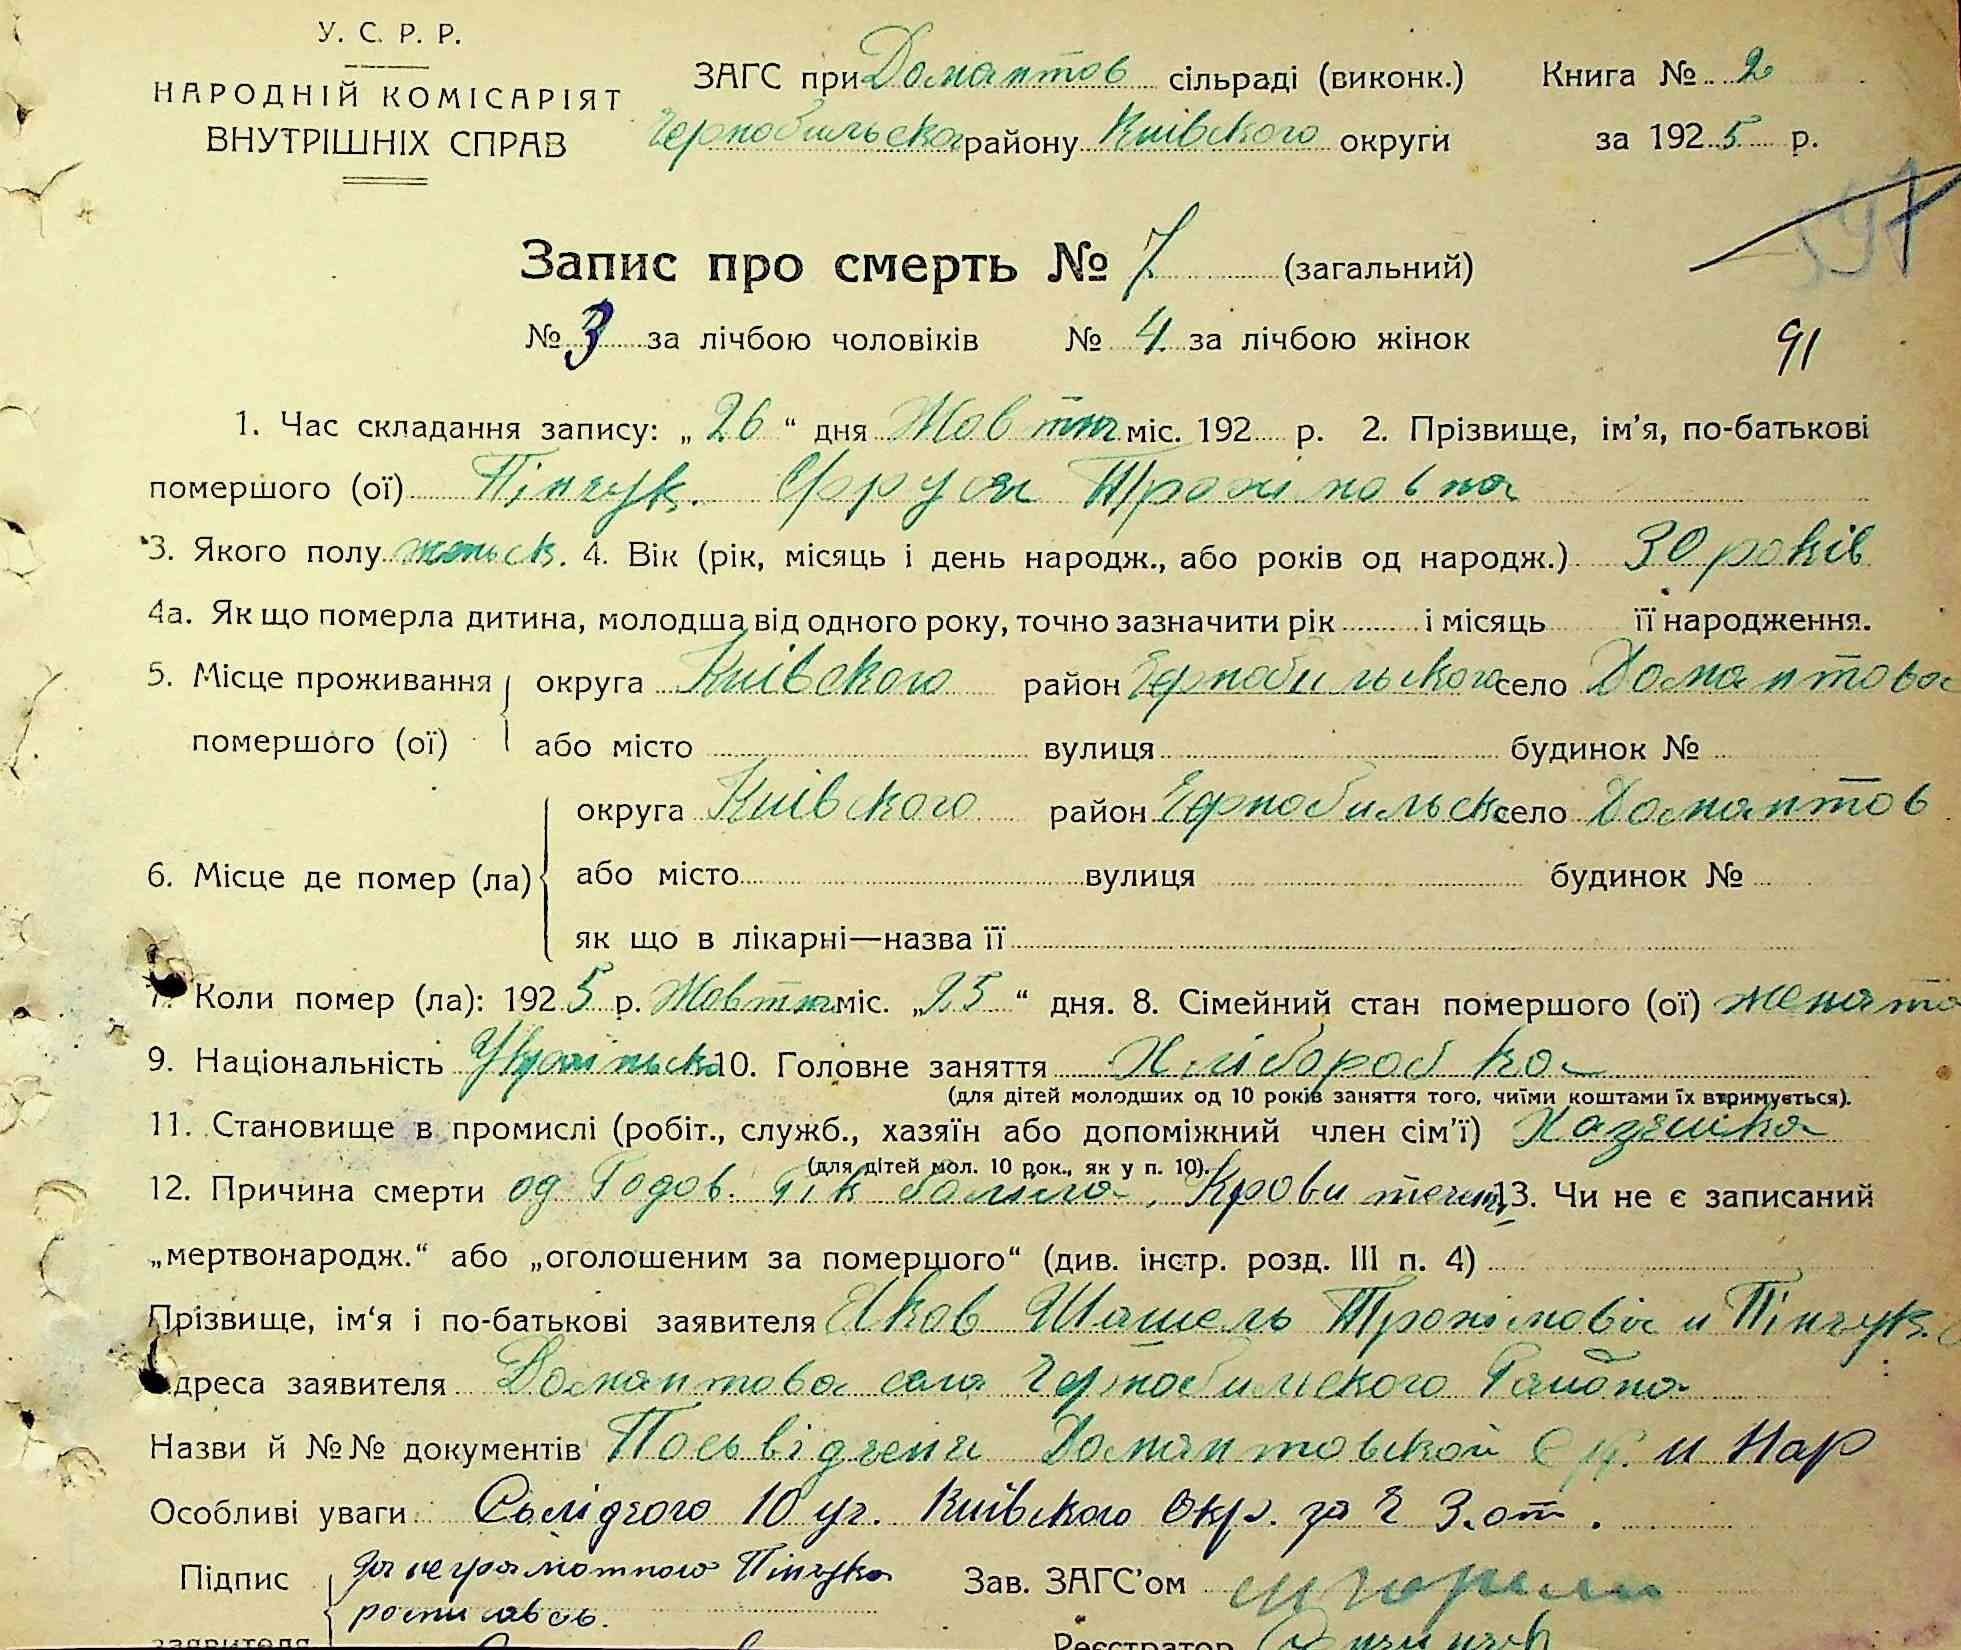 У. С. Р. Р.
НАРОДНІЙ КОМІСАРІЯТ
ВНУТРІШНІХ СПРАВ
ЗАГС при Домантов сільраді (виконк.) Книга № 2
Чернобильско району Київского округи за 1925 р.
Запис про смерть № 7 (загальний)
№ 3 за лічбою чоловіків № 4 за лічбою жінок
91
1. Час складання запису: „26“ дня Жовтня міс. 192 р. 2. Прізвище, ім’я, по-батькові
помершого (ої) Пінчук. Трохімовна
3. Якого полу женск. 4. Вік (рік, місяць і день народж., або років од народж.) 30 років
4а. Як що померла дитина, молодша від одного року, точно зазначити рік і місяць її народження.
5. Місце проживання округа Київского район Чернобильского село Домантова
помершого (ої) або місто вулиця будинок №
округа Київского район Чернобильск село Домантов
6. Місце де помер (ла) або місто вулиця будинок №
як що в лікарні—назва її
7. Коли помер (ла): 1925 р. Жовтня міс. „25“ дня. 8. Сімейний стан помершого (ої) жената
9. Національність Українська 10. Головне заняття Хліборобка
(для дітей молодших од 10 років заняття того, чиїми коштами їх втримується).
11. Становище в промислі (робіт., служб., хазяїн або допоміжний член сім’ї) Хазяйка
(для дітей мол. 10 рок., як у п. 10).
12. Причина смерти од Родов. боліла, Крови 13. Чи не є записаний
„мертвонародж.“ або „оголошеним за помершого“ (див. інстр. розд. III п. 4)
Прізвище, ім‘я і по-батькові заявителя Яков Шашель Трохімовіч и Пінчук.
Адреса заявителя Домантова села Чернобильского Района
Назви й №№ документів Посьвідченя Домантовской и Нар
Особливі уваги Сьлідчого 10 уч. Київского Окр. за Ч 3. от.
Підпис за неграмотного Пінчука Зав. ЗАГС’ом
росписавсь.
заявителя Реєстратор